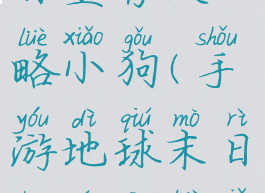 lüè xiǎo gǒu shǒu
略小狗(手
yóu dì qiú mò rì
游地球末日